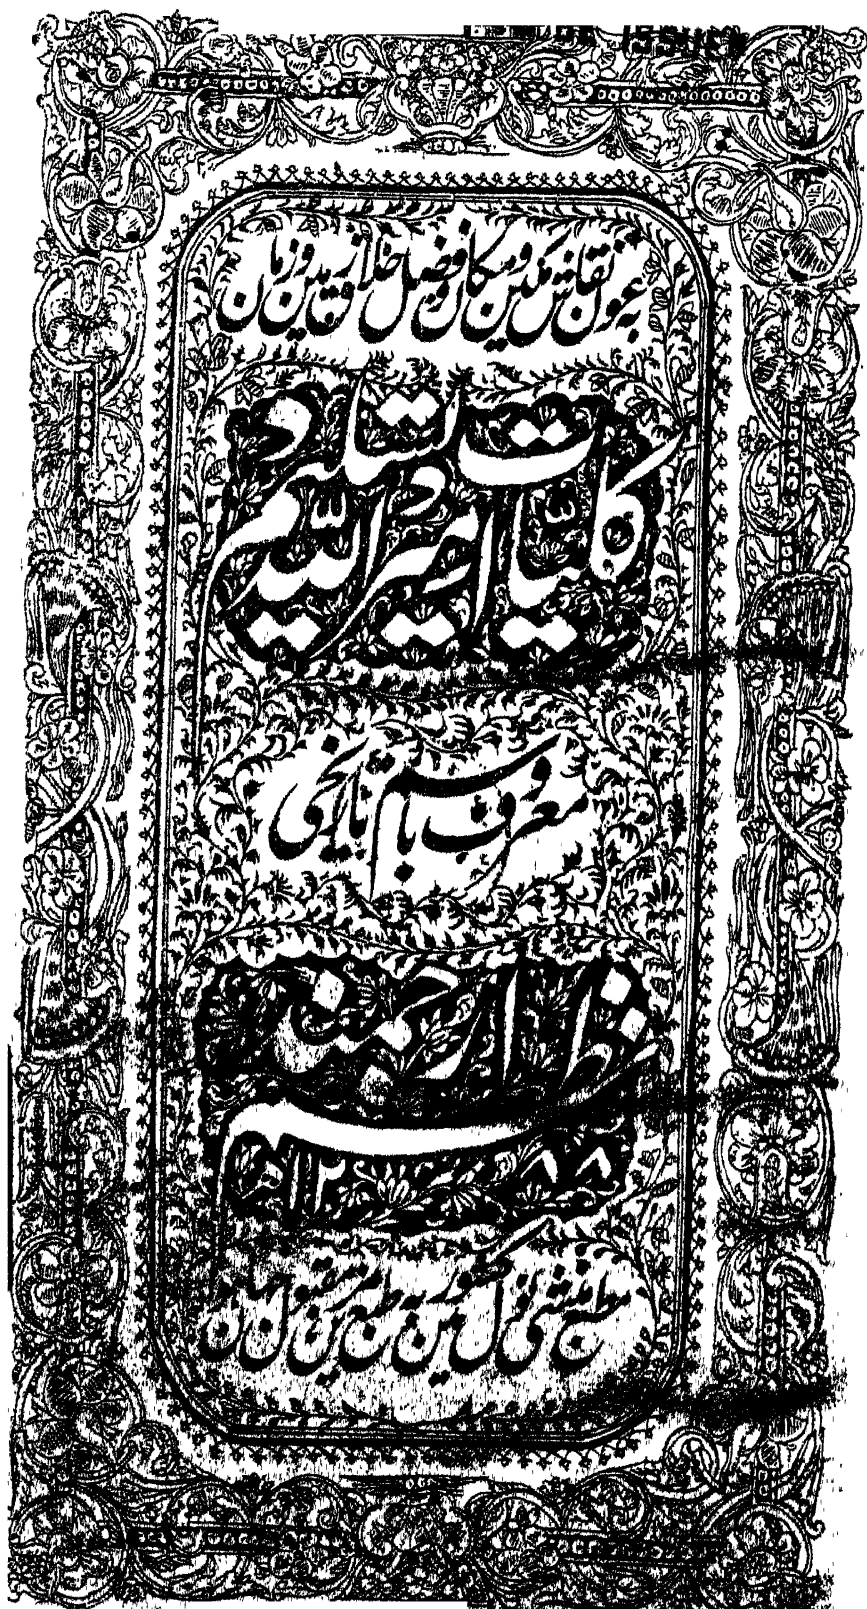 بعون نقاش مکین و مکان و فضل خلاق زمین و زمان
کلیات امیر اللہ تسلیم
معروف باسم تاریخی
نظم ارجمند
۱۲۸۸
مطبع منشی نولکشور مین بہ طبع مقبول جہان
ISSUED